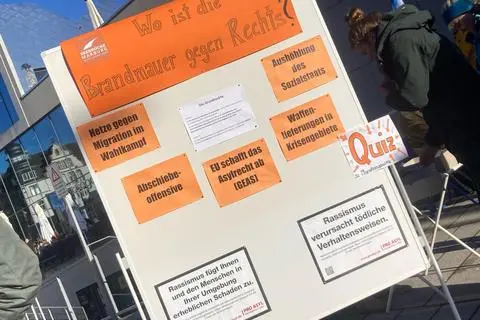 Wo ist die
Brandmauer gegen Rechts?
Hetze gegen
Migration im
Wahlkampf
Aushöhlung
des
Sozialstaats
Abschiebe-
offensive
EU schafft das
Asylrecht ab
(GEAS)
Waffen-
lieferungen in
Krisengebiete
Quiz
Rassismus fügt Ihnen
und den Menschen in
Ihrer Umgebung
erheblichen Schaden zu.
PRO ASYL
Rassismus
verursacht tödliche
Verhaltensweisen.
PRO ASYL